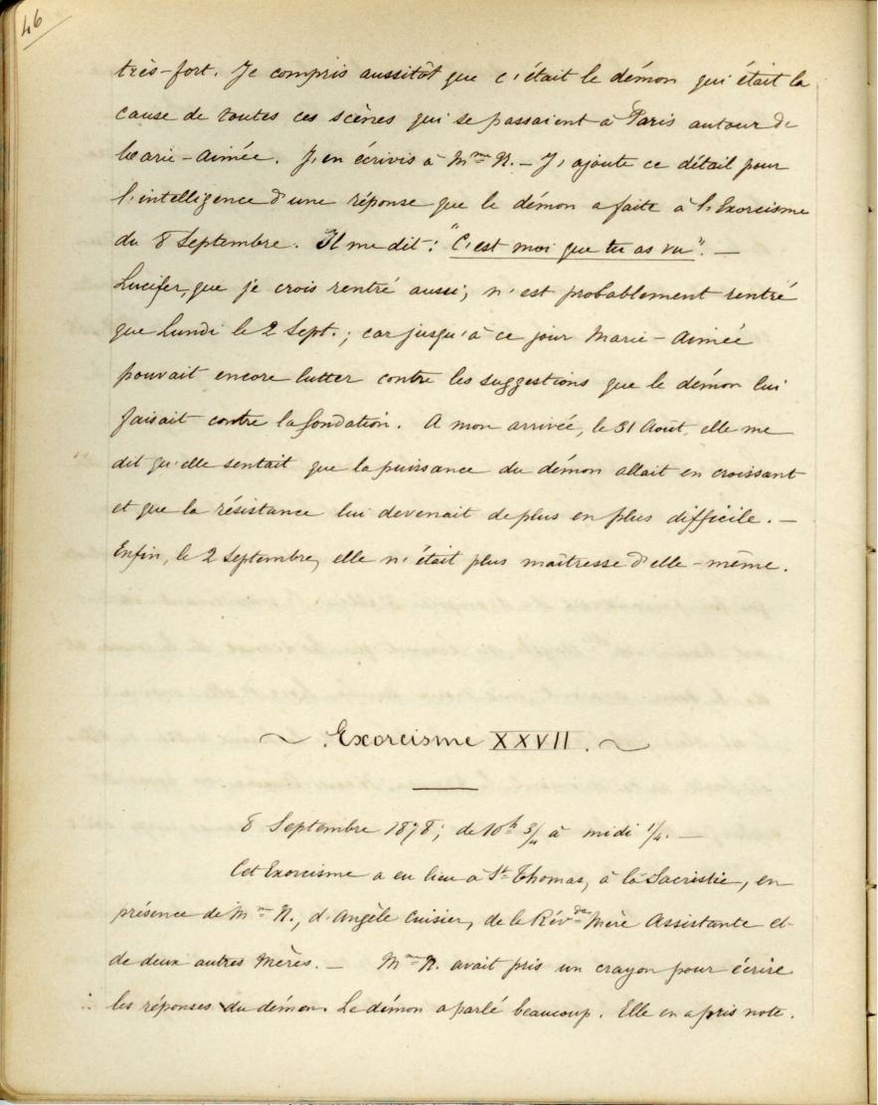 46
très-fort. Je compris aussitôt que c'était le démon qui était la
cause de toutes ces scènes qui se passaient à Paris autour de
Marie-Aimée. J'en écrivis à Mme N. — J'ajoute ce détail pour
l'intelligence d'une réponse que le démon a faite à l'Exorcisme
du 8 Septembre. Il me dit : "C'est moi que tu as vu". —
Lucifer, que je crois rentré aussi, n'est probablement rentré
que Lundi le 2 Sept.; car jusqu'à ce jour Marie-Aimée
pouvait encore lutter contre les suggestions que le démon lui
faisait contre la fondation. A mon arrivée, le 31 Août, elle me
dit qu'elle sentait que la puissance du démon allait en croissant
et que la résistance lui devenait de plus en plus difficile. —
Enfin, le 2 Septembre, elle n'était plus maîtresse d'elle-même.
~ Exorcisme XXVII. ~
8 Septembre 1878; de 10h 3/4 à midi 1/4. —
Cet Exorcisme a eu lieu à St Thomas, à la Sacristie, en
présence de Mme N., d'Angèle Cuisier, de la Révde Mère Assistante et
de deux autres Mères. — Mme N. avait pris un crayon pour écrire
les réponses du démon. Le démon a parlé beaucoup. Elle en a pris note.